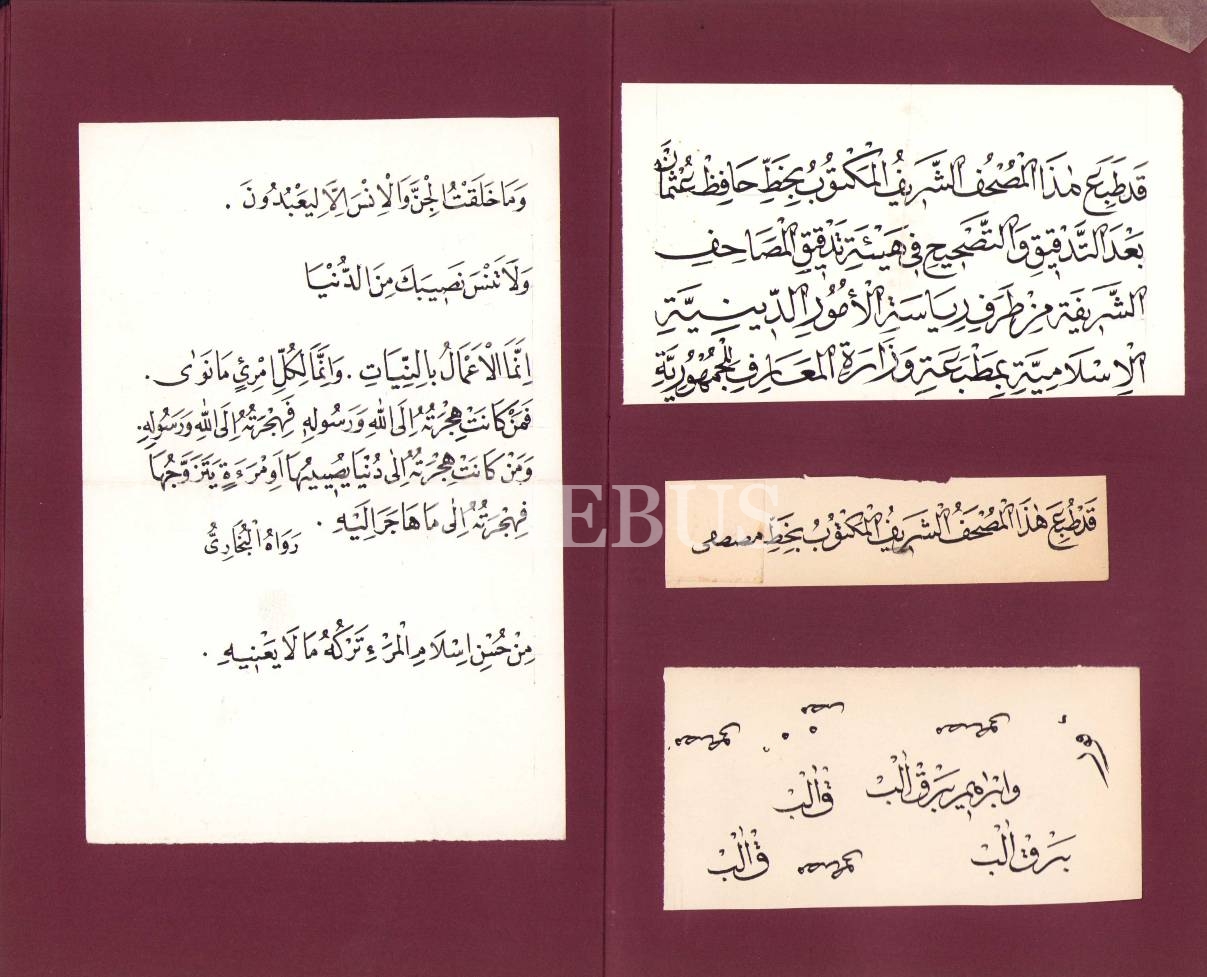 وَمَا خَلَقْتُ الْجِنَّ وَالْاِنْسَ اِلَّا لِيَعْبُدُونَ .
وَلَا تَنْسَ نَصِيبَكَ مِنَ الدُّنْيَا
اِنَّمَا الْاَعْمَالُ بِالنِّيَّاتِ . وَاِنَّمَا لِكُلِّ امْرِئٍ مَا نَوٰى .
فَمَنْ كَانَتْ هِجْرَتُهُ اِلَى اللهِ وَرَسُولِهِ فَهِجْرَتُهُ اِلَى اللهِ وَرَسُولِهِ .
وَمَنْ كَانَتْ هِجْرَتُهُ اِلٰى دُنْيَا يُصِيبُهَا اَوِ مْرَءَةٍ يَتَزَوَّجُهَا
فَهِجْرَتُهُ اِلٰى مَا هَاجَرَ اِلَيْهِ .
رَوَاهُ الْبُخَارِىُّ
مِنْ حُسْنِ اِسْلَامِ الْمَرْءِ تَرْكُهُ مَا لَا يَعْنِيهِ .
قَدْ طُبِعَ هٰذَا الْمُصْحَفُ الشَّرِيفُ الْمَكْتُوبُ بِخَطِّ حَافِظْ عُثْمَانْ
بَعْدَ التَّدْقِيقِ وَالتَّصْحِيحِ فِى هَيْئَةِ تَدْقِيقِ الْمَصَاحِفِ
الشَّرِيفَةِ مِنْ طَرَفِ رِيَاسَةِ الْأُمُورِ الدِّينِيَّةِ
الْاِسْلَامِيَّةِ بِمَطْبَعَةِ وَزَارَةِ الْمَعَارِفِ لِلْجُمْهُورِيَّةِ
قَدْ طُبِعَ هٰذَا الْمُصْحَفُ الشَّرِيفُ الْمَكْتُوبُ بِخَطِّ مصطفى
وابْرٰهِيم بَرْقْ اٰلْبْ
قْ اٰلْبْ
بَرْقْ اٰلْبْ
قْ اٰلْبْ